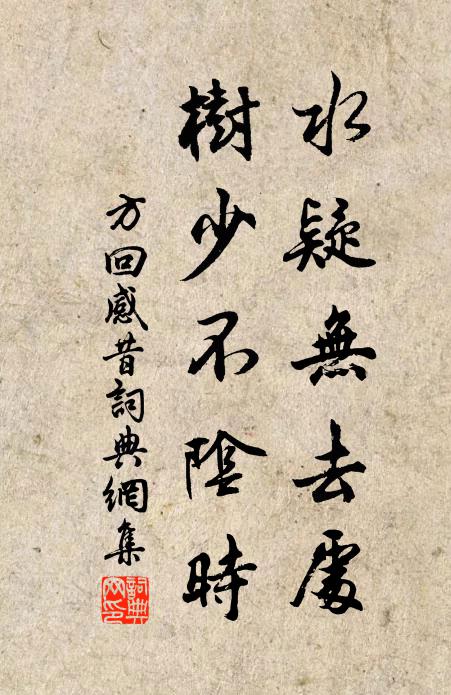 水疑無去處
樹少不陰時
方回感昔詞典網集
詞典網印